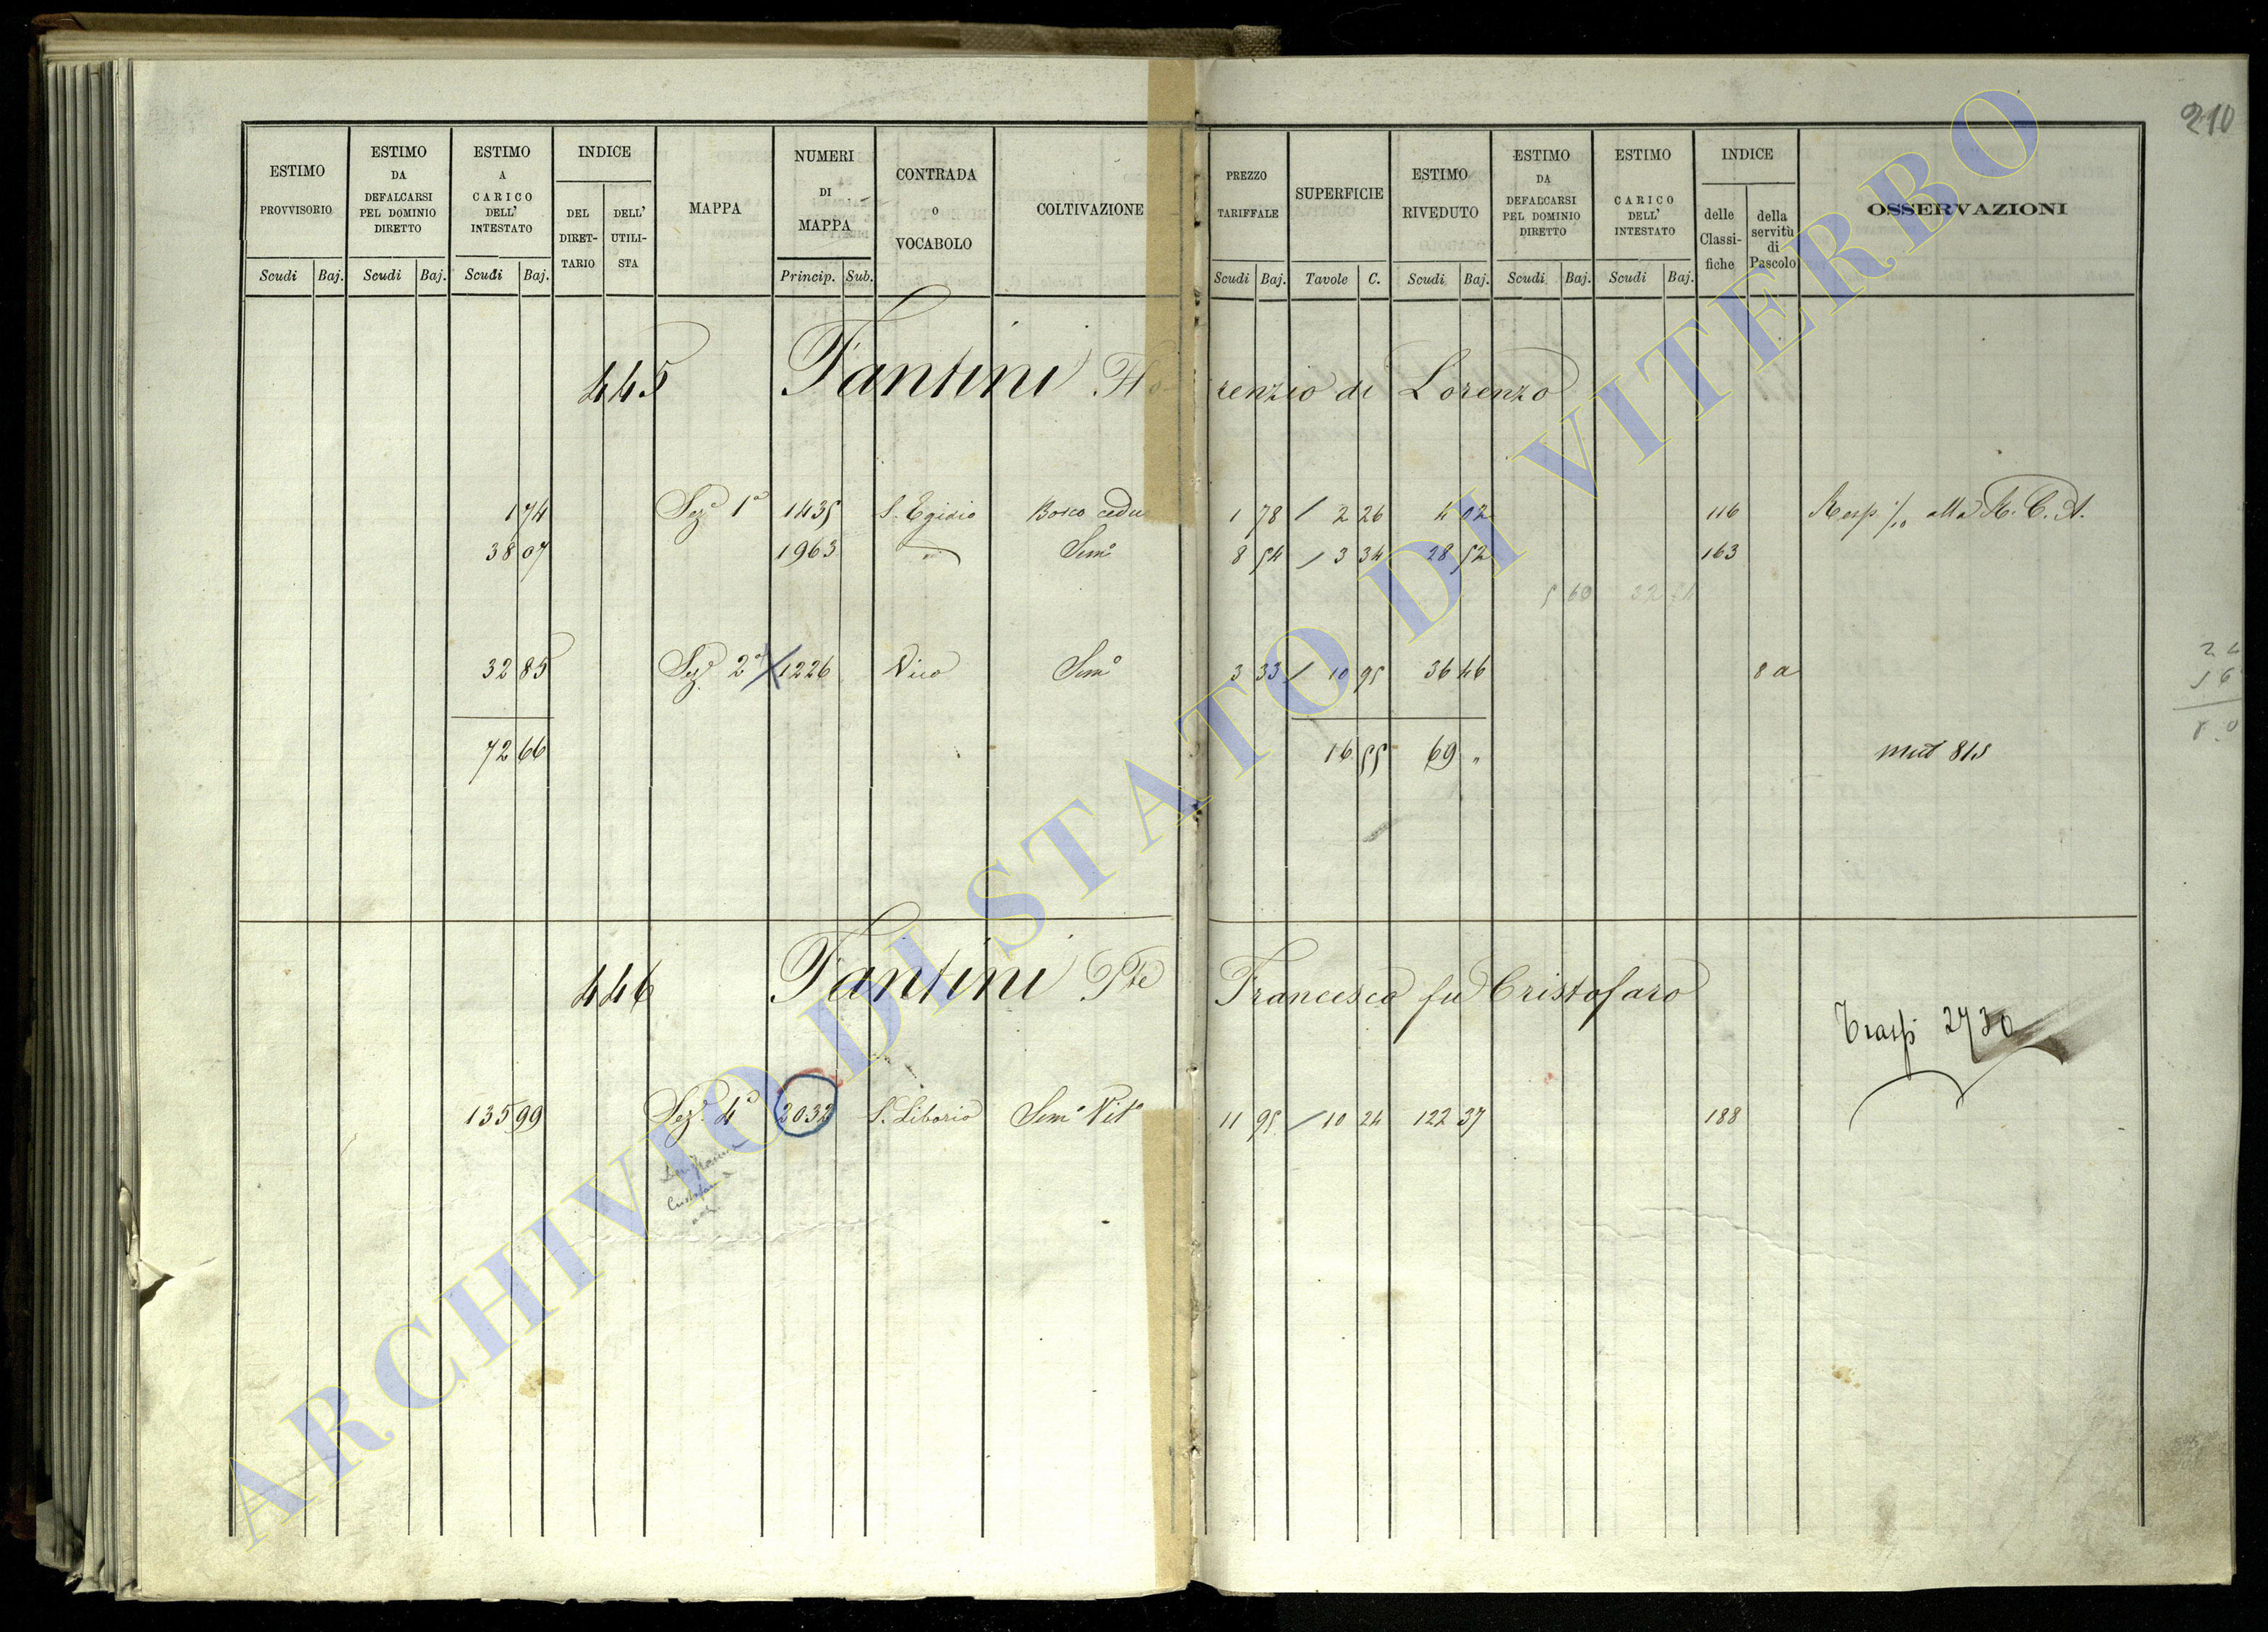 210
ESTIMO PROVVISORIO
ESTIMO DA DEFALCARSI PEL DOMINIO DIRETTO
ESTIMO A CARICO DELL' INTESTATO
INDICE
DEL DIRET-TARIO
DELL' UTILI-STA
MAPPA
NUMERI DI MAPPA
CONTRADA O VOCABOLO
COLTIVAZIONE
PREZZO TARIFFALE
SUPERFICIE
ESTIMO RIVEDUTO
ESTIMO DA DEFALCARSI PEL DOMINIO DIRETTO
ESTIMO CARICO DELL' INTESTATO
INDICE
delle Classi-fiche
della servitù di Pascolo
OSSERVAZIONI
Scudi Baj. Scudi Baj. Scudi Baj. Princip. Sub. Scudi Baj. Tavole C. Scudi Baj. Scudi Baj. Scudi Baj.
445 Fantini Fio- renzio di Lorenzo
1 74 Sezᵉ 1ª 1435 S. Egidio Bosco ceduo 1 78 / 2 26 4 02 116 Resp 1/10 alla R. C. A.
38 07 1963 " Semº 8 54 / 3 34 28 52 163
5 60
32 85 Sezᵉ 2ª 1226 Vico Semº 3 33 / 10 95 36 46 8 a
72 66 16 55 69 "
446 Fantini Pte Francesco fu Cristofaro
135 99 Sezᵉ 4ª 2032 S. Liborio Semº Vitº 11 95 / 10 24 122 37 188
Trasp 2730
ARCHIVIO DI STATO DI VITERBO